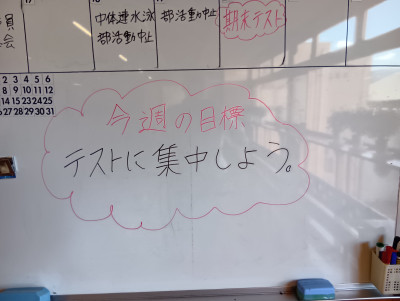 中体連水泳
部活動中止
部活動中止
期末テスト
2 3 4 5 6
8 9 10 11 12 13
14 15 16 17 18 19 20
22 23 24 25 26 27
28 29 30 31
今週の目標
テストに集中しよう。